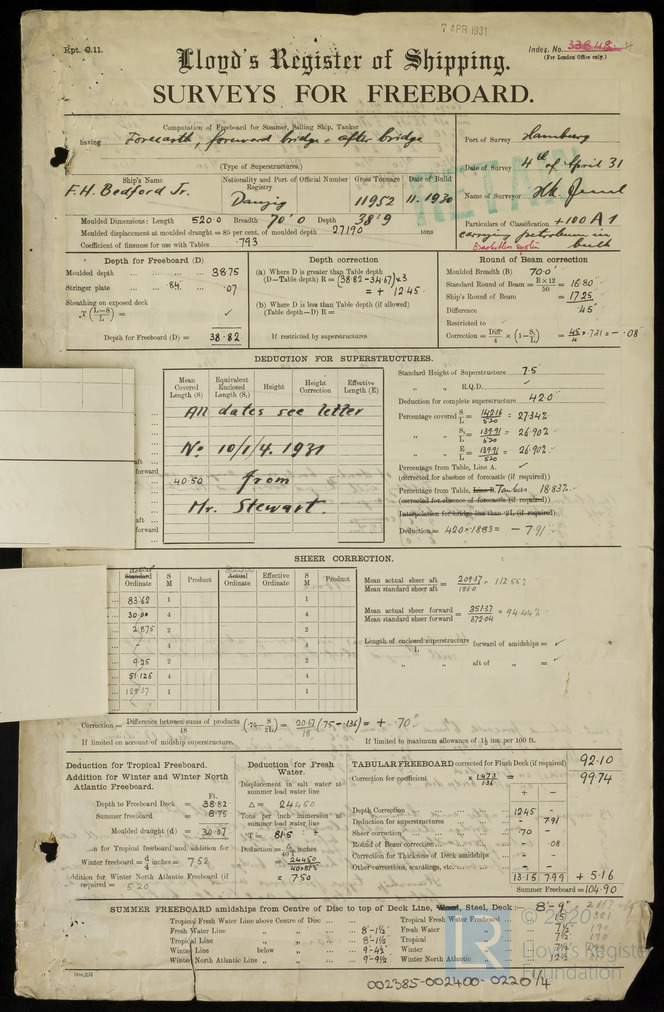 7 APR 1931
Rpt. C.11.
Index. No. 33848
(For London Office only.)
Lloyd's Register of Shipping.
SURVEYS FOR FREEBOARD.
Computation of Freeboard for Steamer, Sailing Ship, Tanker
having Forecastle, forward bridge + after bridge
(Type of Superstructures.)
Port of Survey Hamburg
Date of Survey 4th of April 31
Name of Surveyor
Particulars of Classification +100 A 1
carrying petroleum in
bulk
RETAIN
Ship's Name
F.H. Bedford Jr.
Nationality and Port of Registry
Danzig
Official Number
Gross Tonnage
11952
Date of Build
11.1930
Moulded Dimensions: Length 520.0 Breadth 70'0 Depth 38'9
Moulded displacement at moulded draught = 85 per cent. of moulded depth 27190 tons
Coefficient of fineness for use with Tables .793
Depth for Freeboard (D)
Moulded depth ... 38.75
Stringer plate ... .84 ... .07
Sheathing on exposed deck
T (L-S/L) = ✓
Depth for Freeboard (D) = 38.82
Depth correction
(a) Where D is greater than Table depth
(D-Table depth) R = (38.82-34.67)×3
= + 12.45
(b) Where D is less than Table depth (if allowed)
(Table depth-D) R =
If restricted by superstructures
Round of Beam correction
Moulded Breadth (B) 70.0
Standard Round of Beam = B×12/50 = 16.80
Ship's Round of Beam = 17.25
Difference .45
Restricted to
Correction = Diff/4 × (1-S₁/L) = .45/4 × .731 = - .08
DEDUCTION FOR SUPERSTRUCTURES.
Mean Covered Length (S)
Equivalent Enclosed Length (S₁)
Height
Height Correction
Effective Length (E)
All dates see letter
No 10/1/4. 1931
40.50 from
Mr. Stewart.
aft
forward
aft
forward
Standard Height of Superstructure 7.5
" " R.Q.D. ✓
Deduction for complete superstructure 42.0
Percentage covered S/L = 142.16/520 = 27.34%
" " S₁/L = 139.91/520 = 26.90%
" " E/L = 139.91/520 = 26.90%
Percentage from Table, Line A. ✓
(corrected for absence of forecastle (if required))
Percentage from Table, Line B. Tankers 18.83%
(corrected for absence of forecastle (if required))
Interpolation for bridge less than .2L (if required)
Deduction = 42.0 × .1883 = - 7.91
SHEER CORRECTION.
Actual Standard Ordinate
S M
Product
Standard Actual Ordinate
Effective Ordinate
S M
Product
83.62 1 1
30.00 4 4
2.875 2 2
- 4 4
9.25 2 2
51.125 4 4
128.37 1 1
Mean actual sheer aft / Mean standard sheer aft = 209.37/186.0 = 112.55%
Mean actual sheer forward / Mean standard sheer forward = 351.37/372.04 = 94.44%
Length of enclosed superstructure / L forward of amidships = ✓
" " aft of " = ✓
Correction = Difference between sums of products / 18 (.75 - S/2L) = 20.67/18 (.75 - .136) = + .70
If limited on account of midship superstructure.
If limited to maximum allowance of 1½ ins. per 100 ft.
Deduction for Tropical Freeboard.
Addition for Winter and Winter North
Atlantic Freeboard.
Ft.
Depth to Freeboard Deck = 38.82
Summer freeboard = 8.75
Moulded draught (d) = 30.07
on for Tropical freeboard and addition for
Winter freeboard = d/4 inches = 7.52
Addition for Winter North Atlantic Freeboard (if
required = 5.20
Deduction for Fresh
Water.
Displacement in salt water at
summer load water line
Δ = 24450
Tons per inch immersion at
summer load water line
T = 81.5
Deduction = Δ/40T inches
= 24450/40×81.5
= 7.50
TABULAR FREEBOARD corrected for Flush Deck (if required) 92.10
Correction for coefficient × 1.473/1.36 = 99.74
+ -
Depth Correction 12.45 -
Deduction for superstructures - 7.91
Sheer correction .70 -
Round of Beam correction - .08
Correction for Thickness of Deck amidships - -
Other corrections, scantlings, etc. - -
13.15 7.99 + 5.16
Summer Freeboard = 104.90
SUMMER FREEBOARD amidships from Centre of Disc to top of Deck Line, Wood, Steel, Deck:- 8'-9"
Tropical Fresh Water Line above Centre of Disc
Fresh Water Line " " 8'-1½"
Tropical Line " " 8'-1½"
Winter Line below " 9'-4½"
Winter North Atlantic Line " " 9'-9½"
Tropical Fresh Water Freeboard 15"
Fresh Water " 7½"
Tropical " 7½"
Winter " 7½"
Winter North Atlantic " 12½"
© 2020
LR
Lloyd's Register
Foundation
002385-002400-0220 1/4